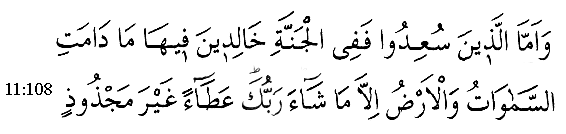 وَاَمَّا الَّذ۪ينَ سُعِدُوا فَفِى الْجَنَّةِ خَالِد۪ينَ ف۪يهَا مَا دَامَتِ
السَّمٰوَاتُ وَالْاَرْضُ اِلَّا مَا شَٓاءَ رَبُّكَۜ عَطَٓاءً غَيْرَ مَجْذُوذٍ 11:108